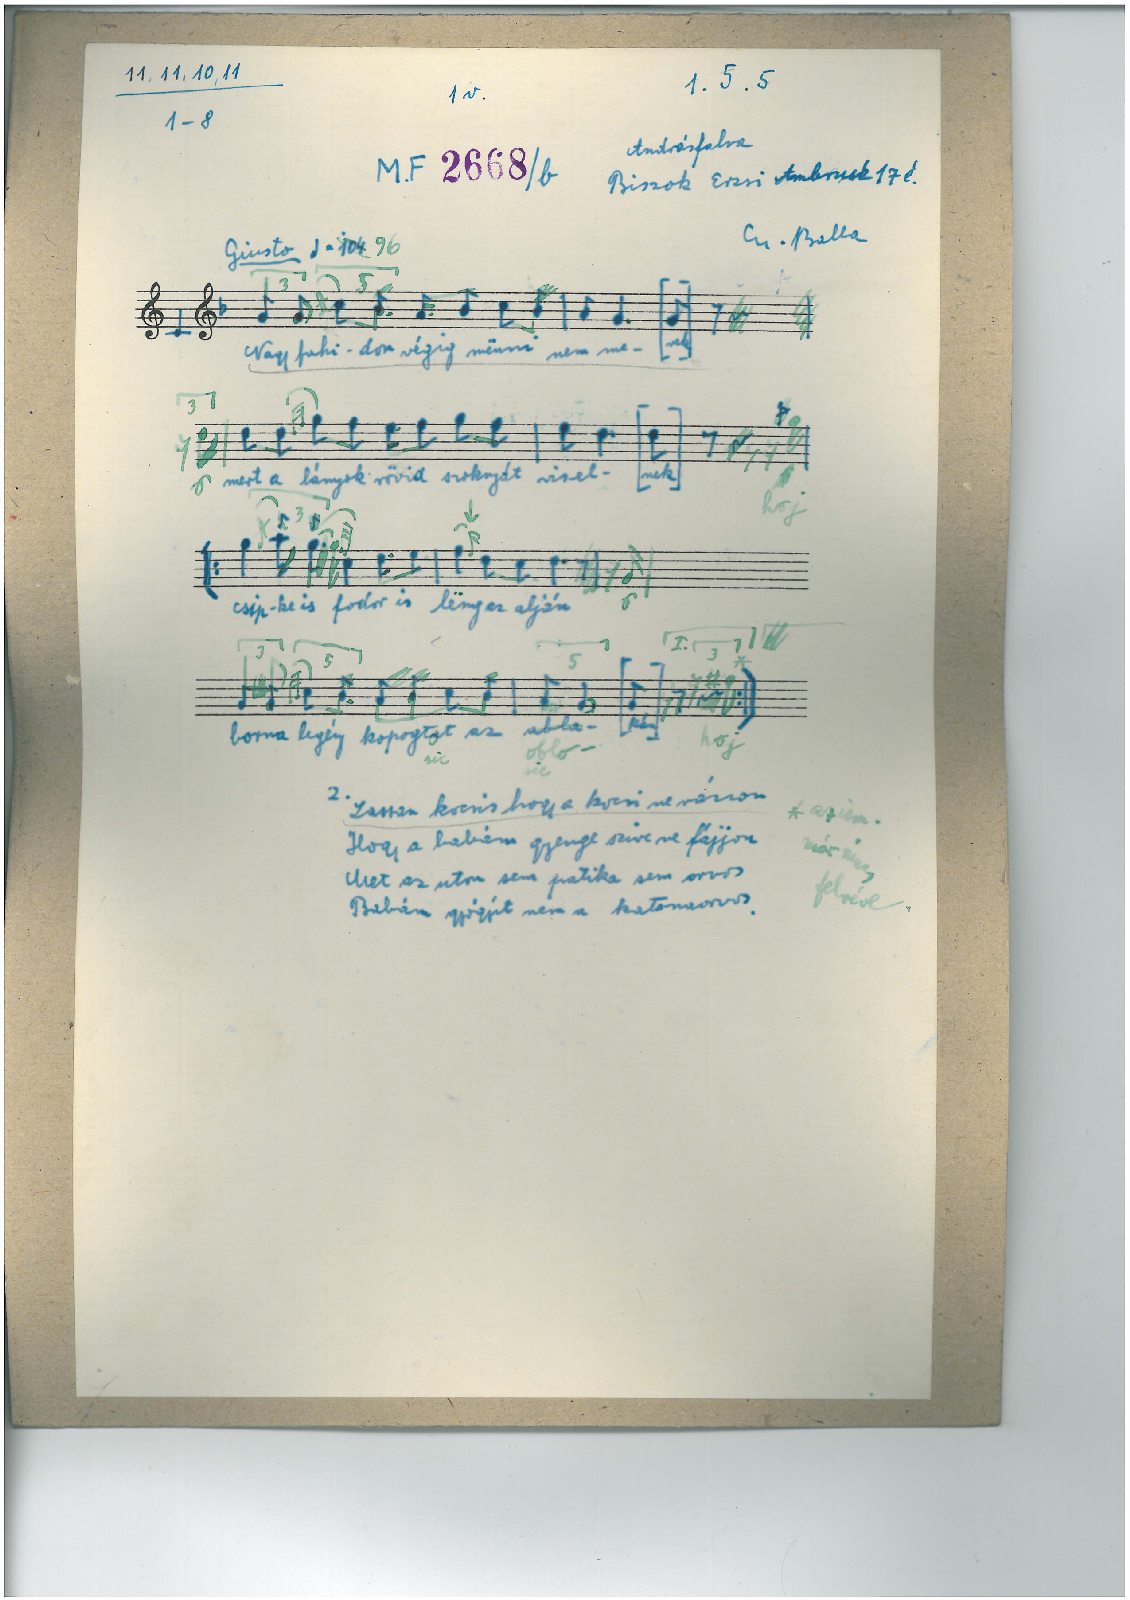 11. 11. 10, 11
1 v.
1. 5. 5
1-8
M.F 2668/b
Andrásfalva
Biszok Erzsi Ambrusék 17 é.
Balla
Giusto 104 96
3 5
Nagy fahi-don végig mënni nem me- [nek]
3
mert a lányok rövid szoknyát visel- [nek]
hoj
3
csip-ke is fodor is lëng az alján
3 5 5 I. 3 *
barna legény kopogtat az abla- [kán]
hoj
sic oblo-
sic
2. Lassan kocsis hogy a kocsi ne rázzon
Hogy a babám gyenge szive ne fájjon
Mert az uton sem patika sem orvos
Babám gyógyit nem a katonaorvos.
* az ism.
már nincs
felvéve.